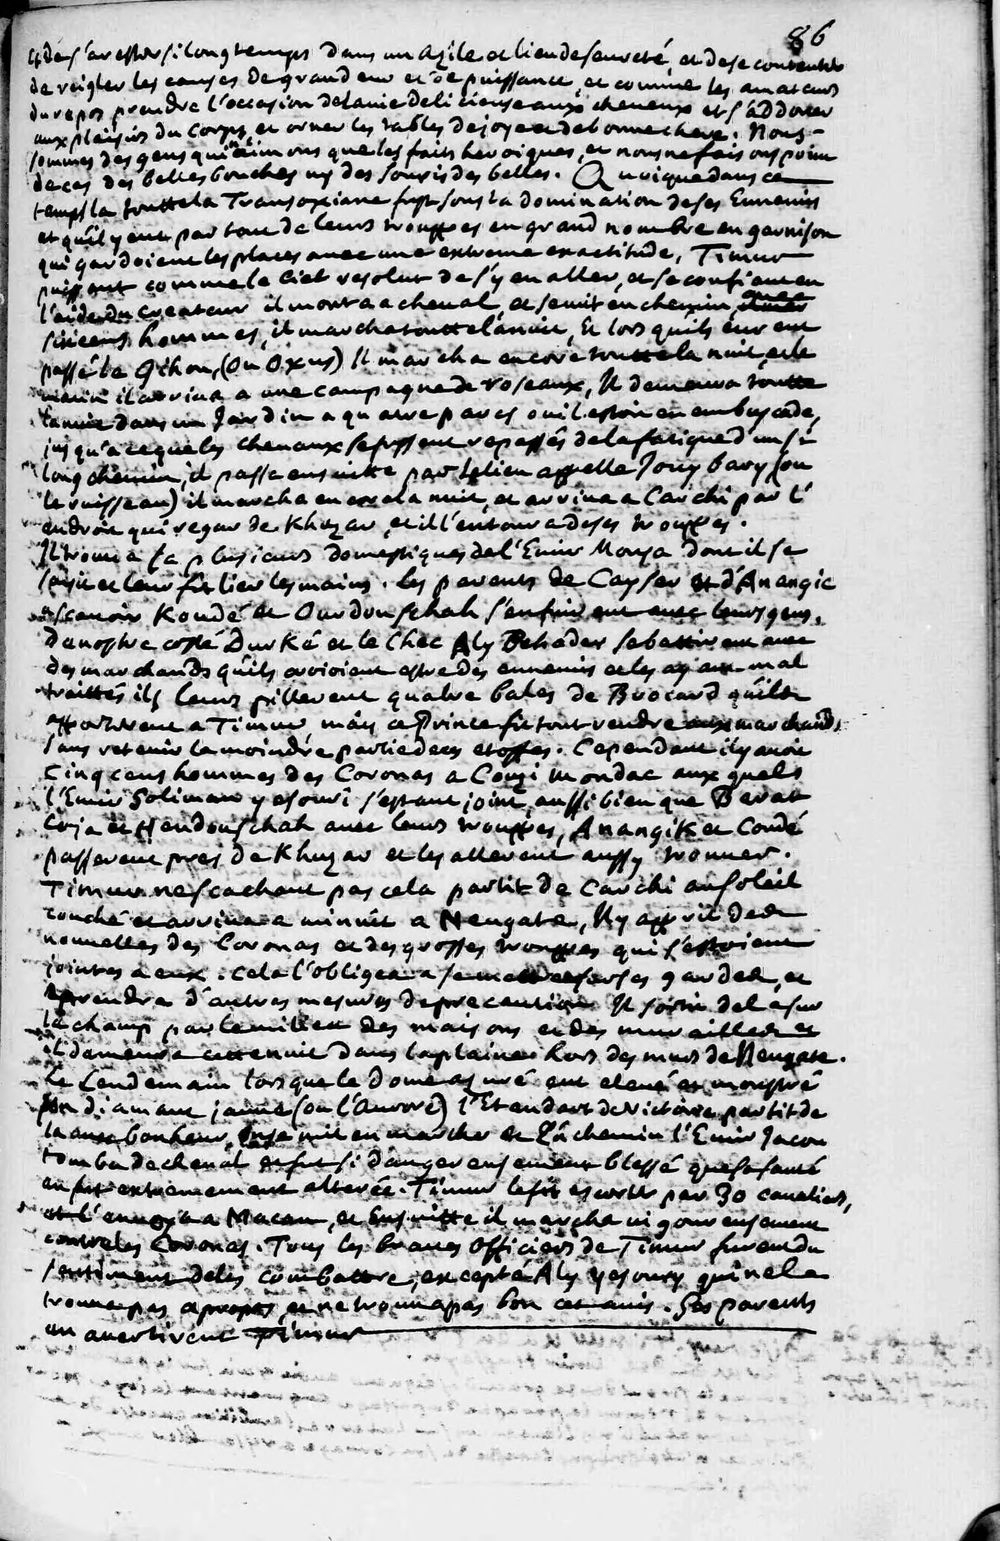 86
et de s'arester si longtemps dans un azile et lieu de seureté, et de se contenter
de reigler les causes de grandeur et de puissance, et comme les amateurs
du repos prendre l'occasion de la vie delicieuse aux cheveux et s'addoner
aux plaisirs du corps, et orner les tables de joye et de bonne chere. Nous
sommes des gens qui n'aimons que les faits heroiques, et nous ne faisons point
de cas des belles bouches ny des souris des belles. Quoique dans ce
temps la toutte la Transoxiane fust sous la domination de ses Ennemis
et qu'il y eut par tout de leurs trouppes en grand nombre en garnison
qui gardoient les places avec une extreme exactitude, Timur
puissant comme le Ciel resolut de s'y en aller, et se confiant en
l'aide du Createur il monta a cheval, et se mit en chemin avec
six cens hommes, il marcha toutte la nuit, Et lors quils eurent
passé le Gihon, (ou Oxus) Il marcha encore toutte la nuit, et le
matin il arriva a une campagne de roseaux, Il demeura toutte
la nuit dans un Jardin a quatre parcs ou il estoit en embuscade,
jusqu'a ce que les chevaux se fussent repassés de la fatigue d'un si
long chemin, il passa ensuitte par le lieu appellé Jouy bary (ou
le ruisseau) il marcha encore la nuit, et arriva a Carchi par l'
endroit qui regarde Khuzar, et il l'entoura de ses trouppes.
Il trouva la plusieurs domestiques de l'Emir Mousa dont il se
saisit et leur fit lier les mains. les parents de Cayser et d'Anangic
scavoir Koudé et Ourdouschah s'enfuirent avec leurs gens.
De nostre costé Durké et le Chec Aly Behader se battirent avec
des marchands qu'ils croioient estre des ennemis et les ayant mal
traittés ils leurs pillerent quatre bales de Brocard qu'ils
apporterent a Timur mais ce Prince fit tout rendre aux marchands
sans retenir la moindre partie de ces etoffes. Cependant il y avoit
cinq cens hommes des Coronas a Couzi mondac aux quels
l'Emir Soliman yesouri s'estant joint, aussi bien que Berat
Coja et Hendouschah avec leurs trouppes, Anangik et Coudé
passerent pres de Khuzar et les allerent aussy trouver.
Timur ne scachant pas cela partit de Carchi au soleil
couché et arriva a minuit a Neugate, Il y apprit des
nouvelles des Coronas et des grosses trouppes qui s'estoient
jointes a eux. cela l'obligea a se mettre sur ses gardes, et
a prendre d'autres mesures de precaution Il sortit de la sur
le champ par le milieu des maisons et des murailles et
il demeura cette nuit dans la plaine hors des murs de Neugate.
Le Lendemain lors que le Dome azuré eut elevé et monstré
son diamant jaune (ou l'Aurore) l'Etendart de Victoire partit de
la avec bonheur, On se mit en marche et En chemin l'Emir Jacou
tomba de cheval et fut si dangereusement blessé que sa santé
en fut extremement alterée. Timur le fit escorter par 30 cavaliers,
et l'envoya a Macan, et Ensuitte il marcha vigoureusement
contre les Coronas. Tous les braves Officiers de Timur furent du
sentiment de les combattre, excepté Aly yesoury qui ne le
trouva pas a propos, et ne trouva pas bon cet avis. Ses parents
en avertirent Timur